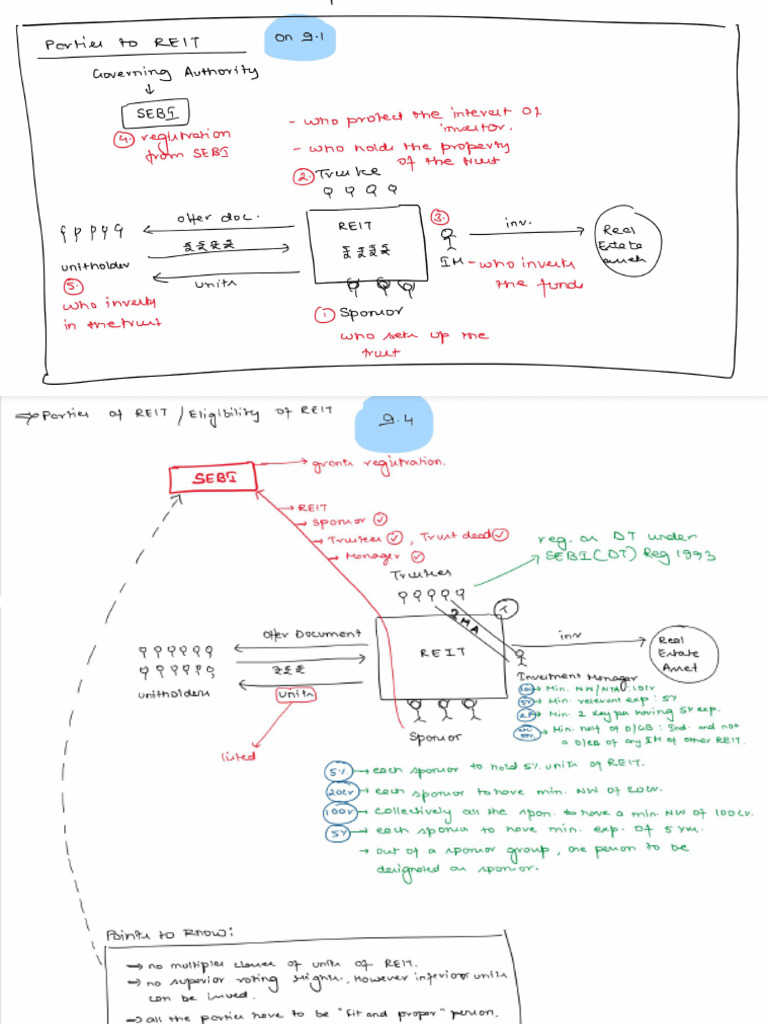 Parties to REIT
on 9.1
Governing Authority
SEBI
4. registration
from SEBI
- who protect the interest of
investor.
- who holds the property
of the trust
2. Trustee
offer doc.
REIT
₹ ₹ ₹ ₹
3.
inv.
Real
Estate
Asset
unitholder
₹ ₹ ₹ ₹
units
IM - who invests
the funds
5.
who invests
in the trust
1. Sponsor
who sets up the
trust
→ Parties of REIT / Eligibility of REIT
9.4
SEBI
→ grants registration.
→ REIT
→ Sponsor ✓
→ Trustees ✓, Trust deed ✓
→ Manager ✓
reg. as DT under
SEBI (DT) Reg 1993
Trustees
T
IMA
Offer Document
REIT
inv
Real
Estate
Asset
₹ ₹ ₹
unitholders
units
listed
Investment Manager
10cr → Min. NW/NTA: 10cr
5Y → Min. relevant exp: 5Y
2KP → Min. 2 Key per having 5Y exp.
→ Min. half of D/GB: Ind. and not
a D/GB of any IM of other REIT.
Sponsor
5% → each sponsor to hold 5% units of REIT.
20cr → each sponsor to have min. NW of 20cr.
100cr → collectively all the spon. to have a min. NW of 100cr.
5Y → each sponsor to have min. exp. of 5 yrs.
→ out of a sponsor group, one person to be
designated as sponsor.
Points to Know:
→ no multiple classes of units of REIT.
→ no superior voting rights, However inferior units
can be issued.
→ all the parties have to be "fit and proper" person.